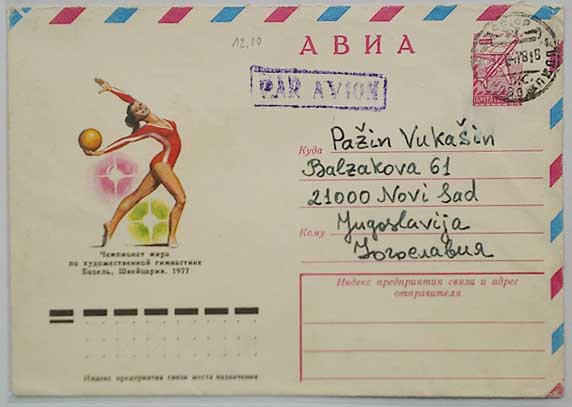 12.10
АВИА
PAR AVION
СССР
Куда
Pažin Vukašin
Balzakova 61
21000 Novi Sad
Jugoslavija
Кому
Югославия
Чемпионат мира
по художественной гимнастике
Базель, Швейцария, 1977
Индекс предприятия связи и адрес
отправителя
Индекс предприятия связи места назначения